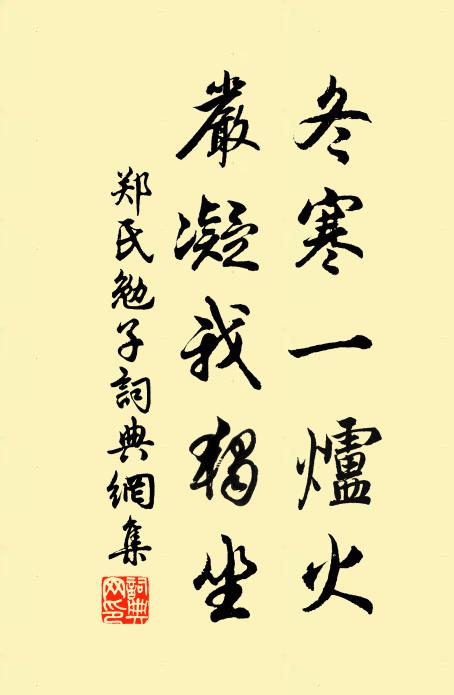 冬寒一爐火
嚴凝我獨坐
郑氏勉子詞典網集
詞典網印